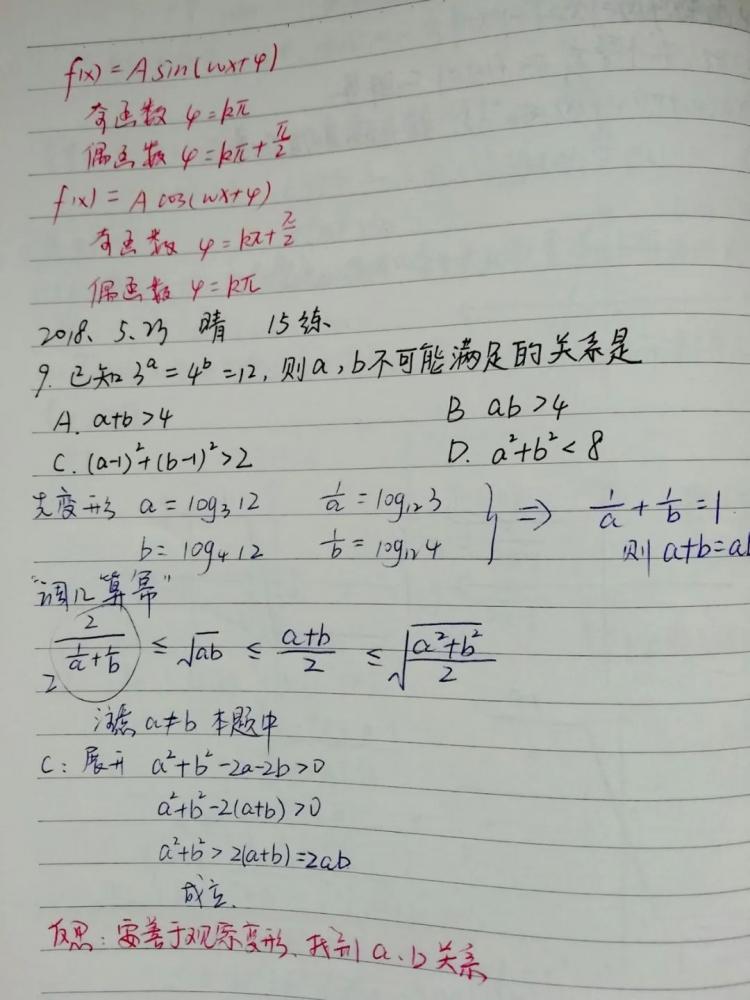 f(x) = A sin(wx+φ)
奇函数 φ = kπ
偶函数 φ = kπ + π/2
f(x) = A cos(wx+φ)
奇函数 φ = kπ + π/2
偶函数 φ = kπ
2018. 5. 23 晴 15练
9. 已知 3^a = 4^b = 12, 则a, b不可能满足的关系是
A. a+b > 4 B ab > 4
C. (a-1)²+(b-1)² > 2 D. a²+b² < 8
先变形 a = log₃12 1/a = log₁₂3 } ⇒ 1/a + 1/b = 1
b = log₄12 1/b = log₁₂4 则 a+b = ab
"调几算幂"
2 2/(1/a + 1/b) ≤ √ab ≤ (a+b)/2 ≤ √((a²+b²)/2)
注意 a≠b 本题中
C: 展开 a²+b²-2a-2b>0
a²+b²-2(a+b)>0
a²+b²>2(a+b)=2ab
成立.
反思: 要善于观察变形、找到 a、b 关系